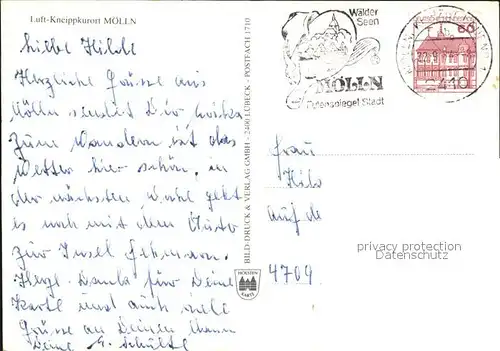 Luft-Kneippkurort MÖLLN
Liebe Hilde
Herzliche Grüsse aus
Mölln sendet Dir
Zum Wandern ist das
Wetter hier schön, in
der nächsten Woche geht
es noch mit dem
zur Insel Fehmarn.
Herzl. Dank für Deine
Karte und auch viele
Grüsse an Deinen Mann
Deine E. Schulte
BILD-DRUCK & VERLAG GMBH - 2400 LÜBECK - POSTFACH 1710
HOLSTEN
KARTE
Wälder
Seen
MÖLLN
Eulenspiegel Stadt
60
MÖLLN
2410
Frau
Hil
auf de
privacy protection
Datenschutz
4709